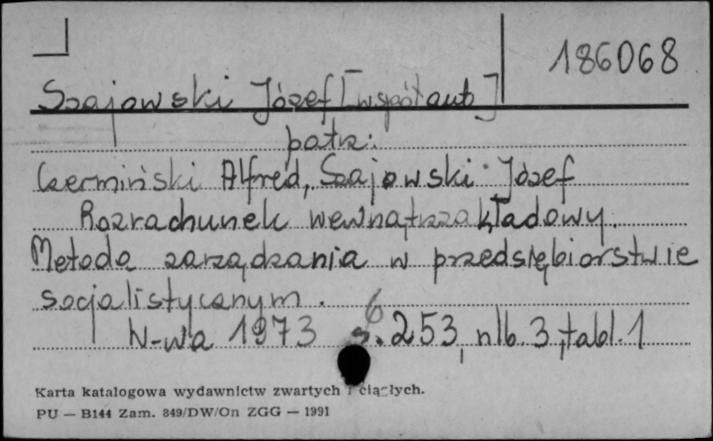 186068
Szajowski Józef [współaut]
patrz:
Czermiński Alfred, Szajowski Józef
Rozrachunek wewnątrzzakładowy.
Metoda zarządzania w przedsiębiorstwie
socjalistycznym.
W-wa 1973 8° s. 253, nlb. 3, tabl. 1
Karta katalogowa wydawnictw zwartych i ciągłych.
PU — B144 Zam. 849/DW/On ZGG — 1991